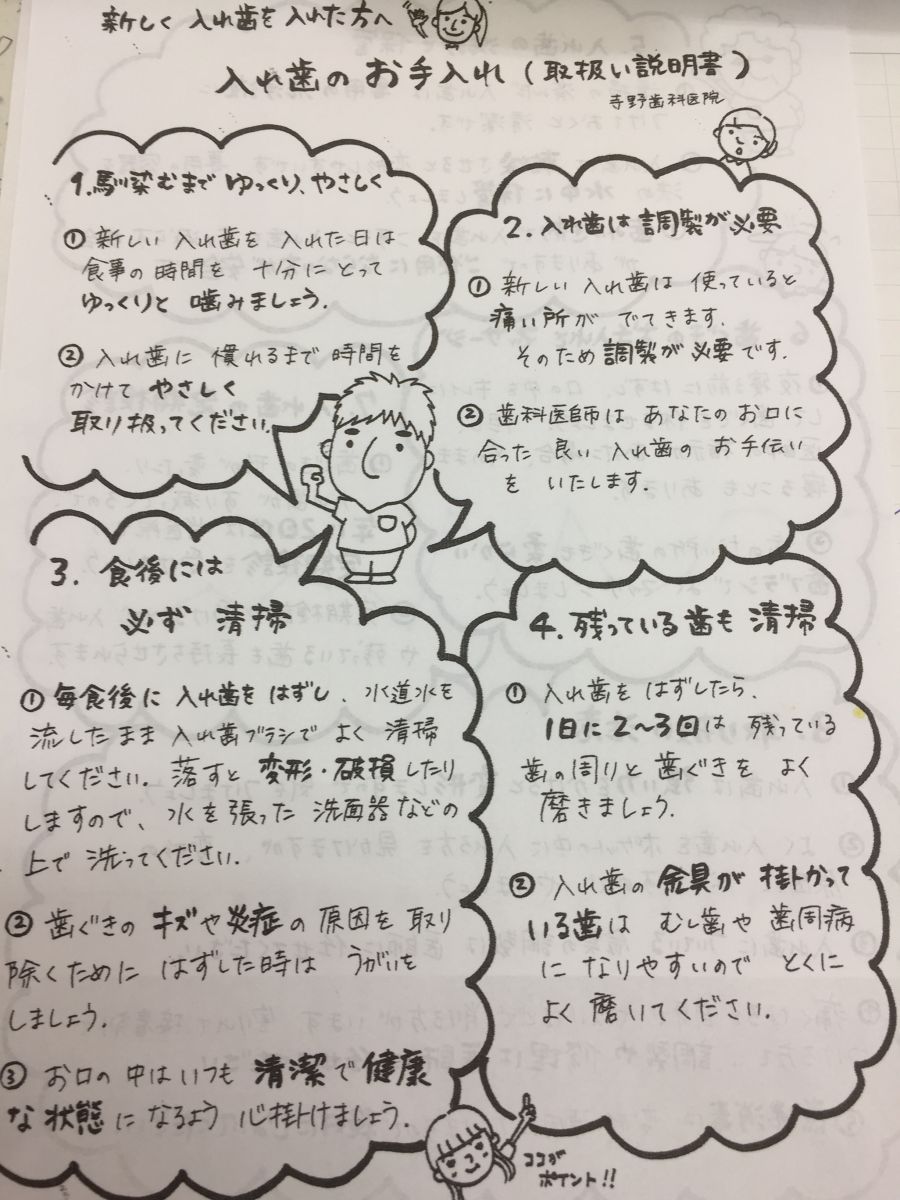 新しく入れ歯を入れた方へ
入れ歯のお手入れ(取扱い説明書)
寺野歯科医院
1.馴染むまでゆっくり、やさしく
① 新しい入れ歯を入れた日は
食事の時間を十分にとって
ゆっくりと噛みましょう.
② 入れ歯に慣れるまで時間を
かけてやさしく
取り扱ってください.
2.入れ歯は調製が必要
① 新しい入れ歯は使っていると
痛い所がでてきます.
そのため調製が必要です.
② 歯科医師はあなたのお口に
合った良い入れ歯のお手伝い
をいたします.
3.食後には
必ず清掃
① 毎食後に入れ歯をはずし、水道水を
流したまま入れ歯ブラシでよく清掃
してください.落すと変形・破損したり
しますので、水を張った洗面器などの
上で洗ってください.
② 歯ぐきのキズや炎症の原因を取り
除くためにはずした時はうがいを
しましょう.
③ お口の中はいつも清潔で健康
な状態になるよう心掛けましょう.
4.残っている歯も清掃
① 入れ歯をはずしたら、
1日に2〜3回は残っている
歯の周りと歯ぐきをよく
磨きましょう.
② 入れ歯の金具が掛かって
いる歯はむし歯や歯周病
になりやすいのでとくに
よく磨いてください.
ココが
ポイント!!